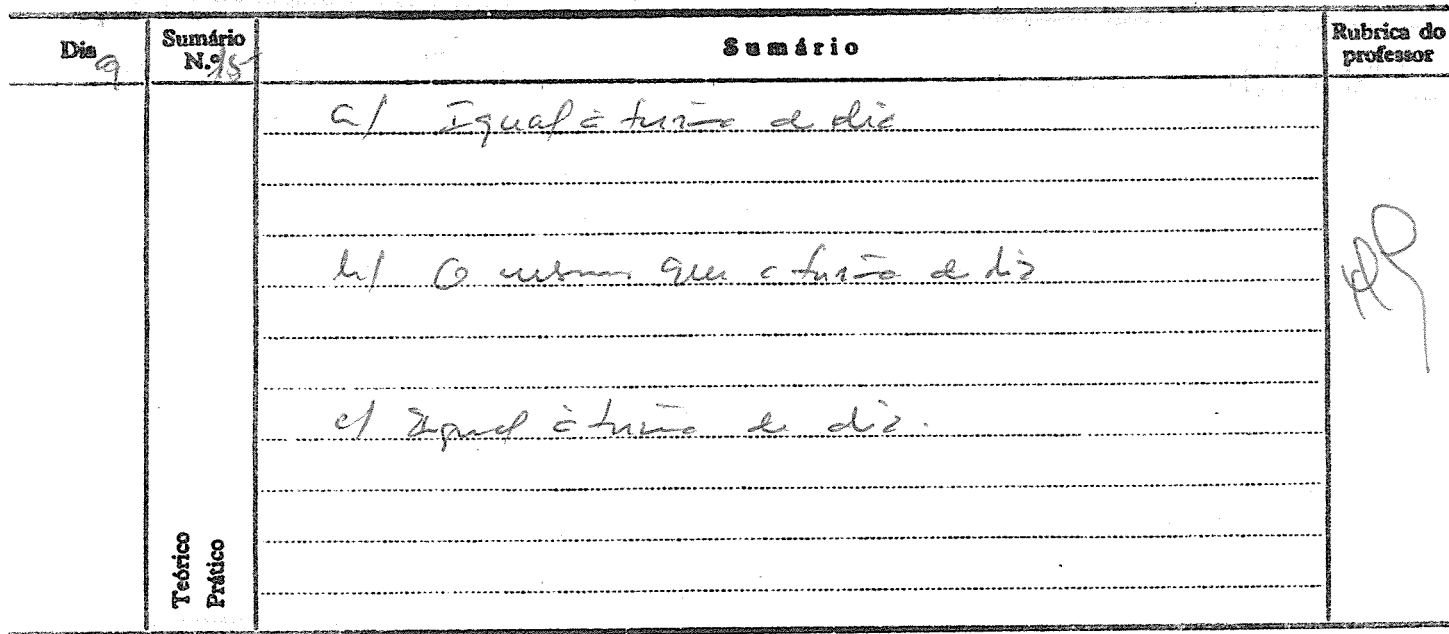 Dia 9
Sumário N.º 15
Sumário
Rubrica do professor
a/ Igual à turma de dia
b/ O mesmo que a turma de dia
c/ Igual à turma de dia.
Teórico
Prático